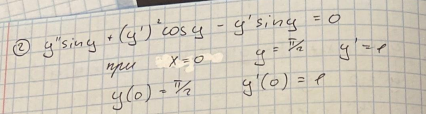 ② y'' sin y + (y')² cos y - y' sin y = 0
при x = 0 y = π/2 y' = e
y(0) = π/2 y'(0) = e